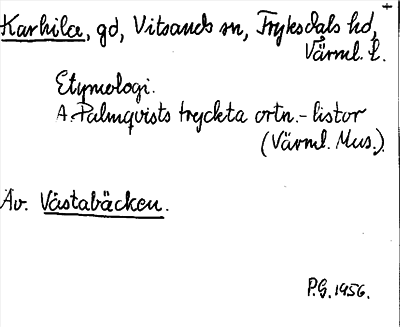 Karhila, gd, Vitsands sn, Fryksdals hd,
Värml. l.
Etymologi.
A. Palmqvists tryckta ortn.-listor
(Värml. Mus.).
Äv. Västabäcken.
P.G. 1956.